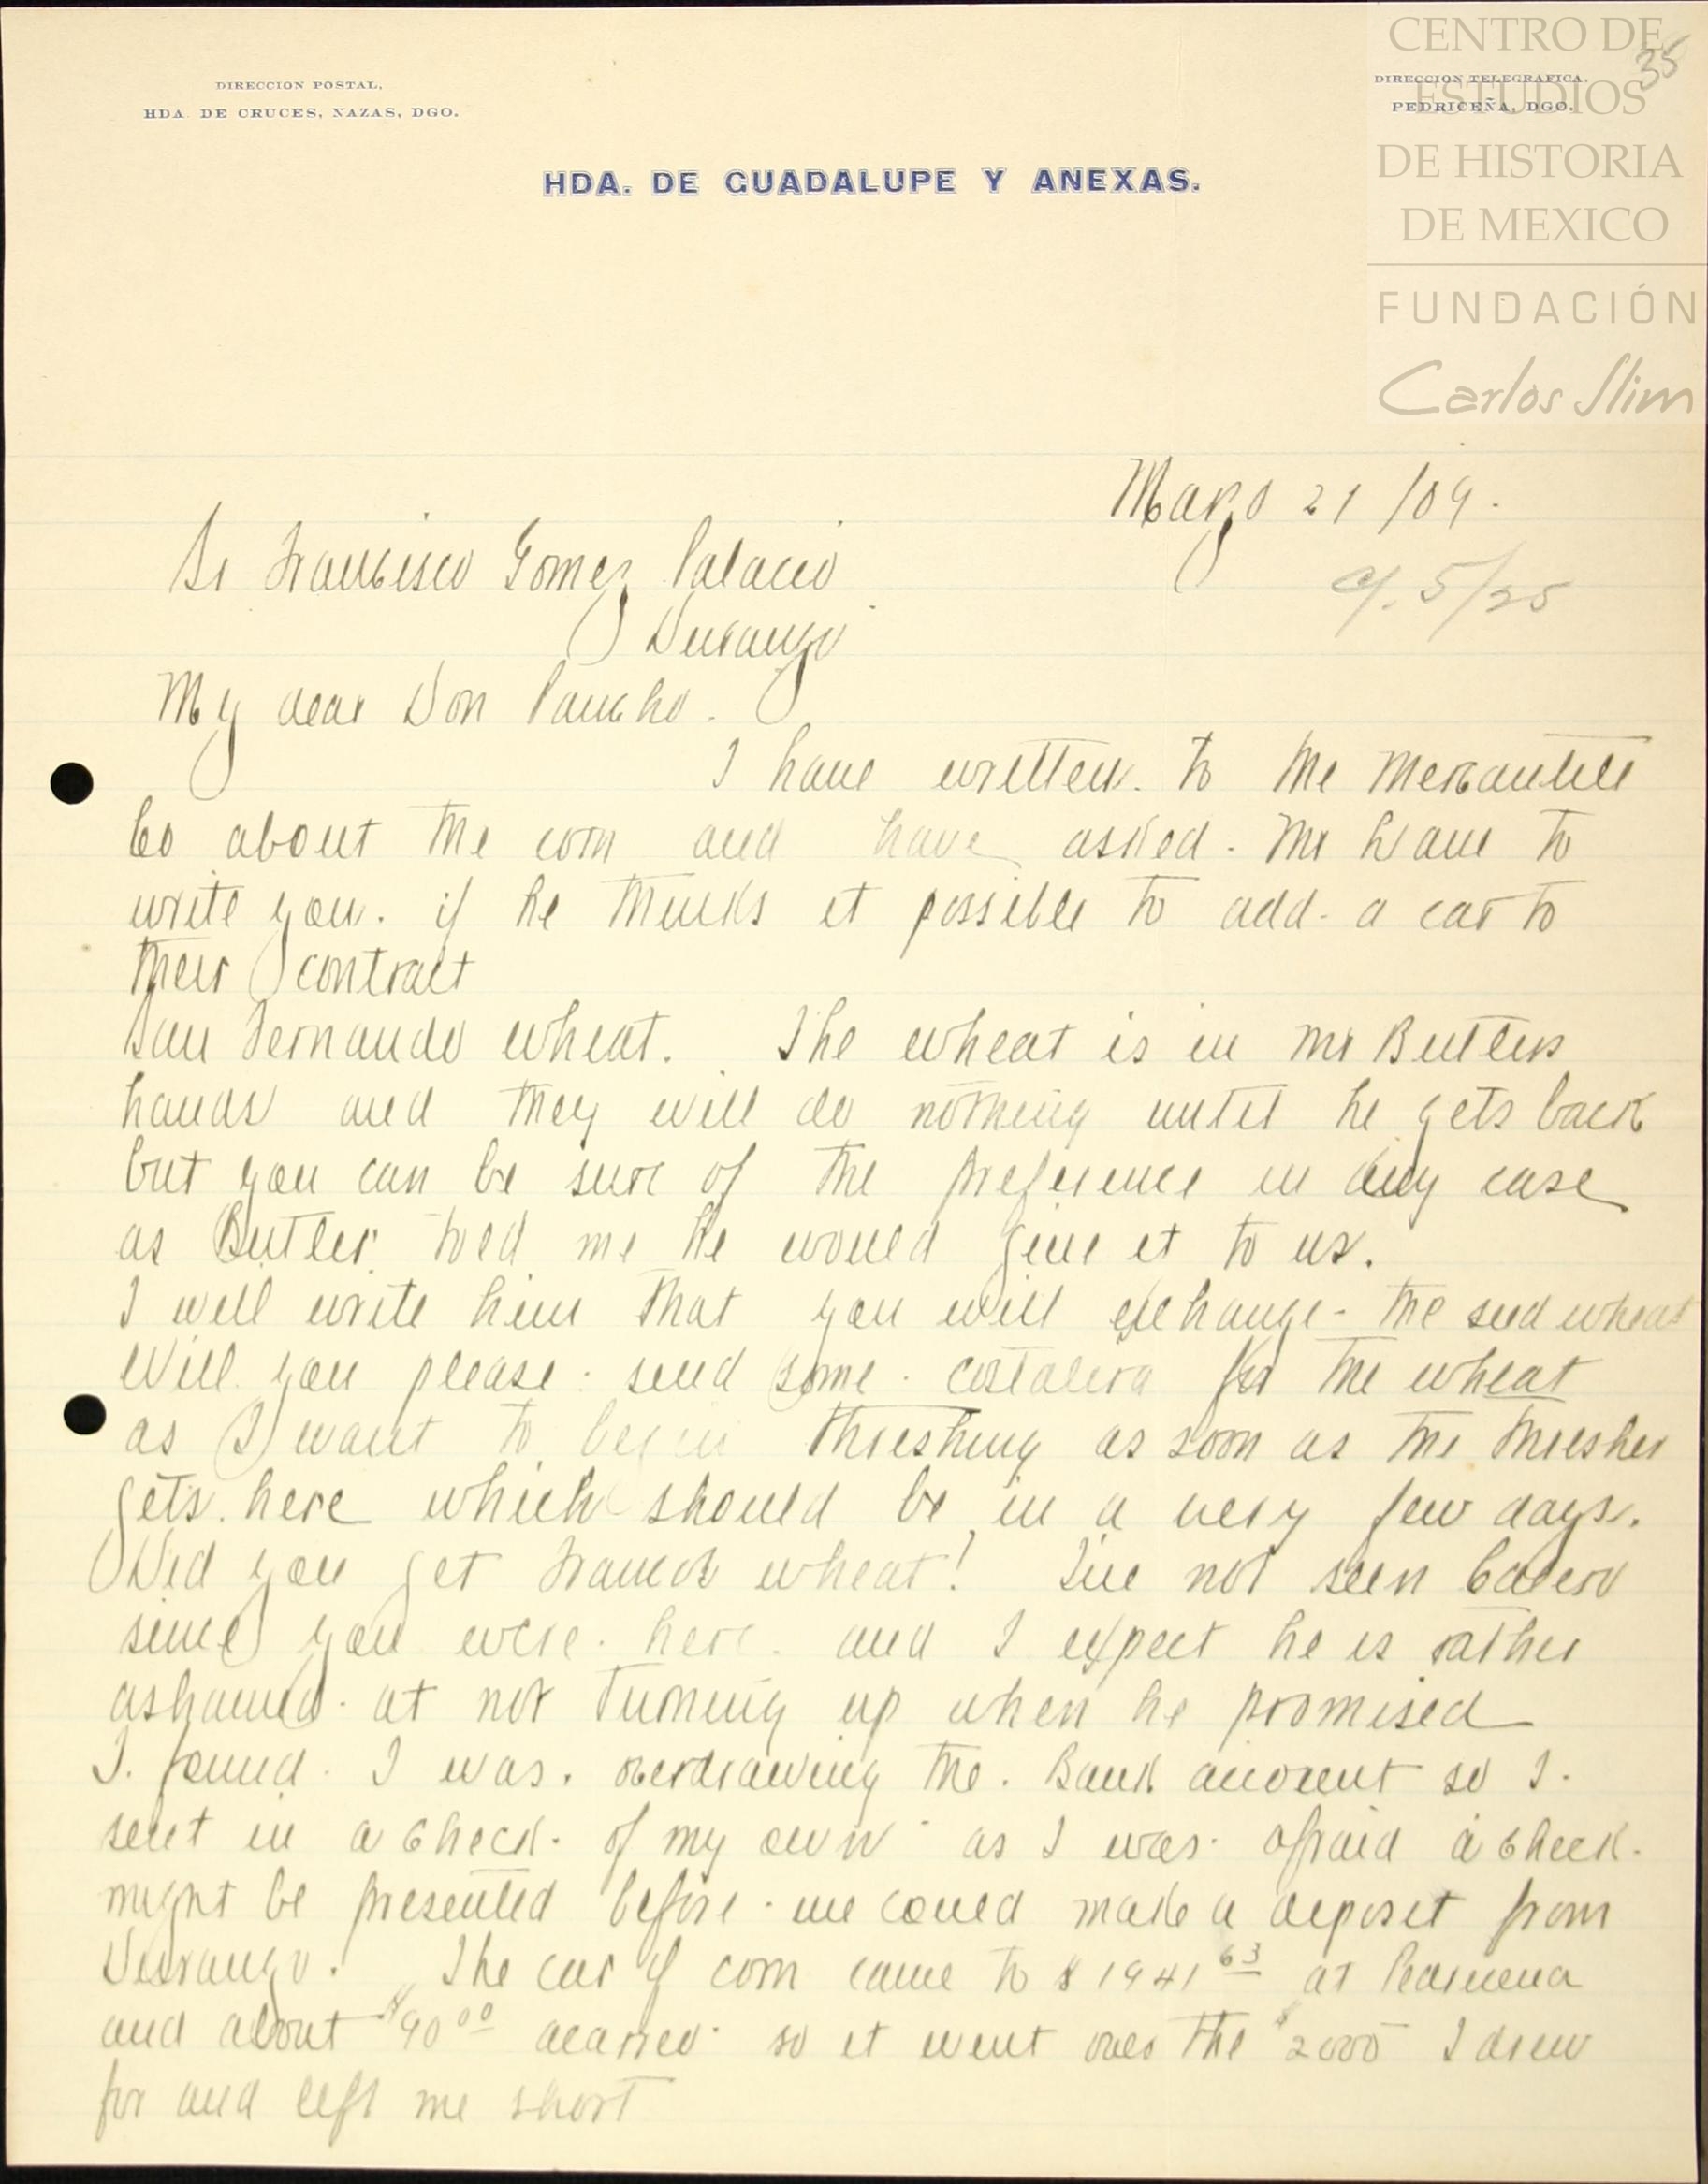 CENTRO DE
ESTUDIOS
DE HISTORIA
DE MEXICO
FUNDACIÓN
Carlos Slim
35
DIRECCION POSTAL,
HDA. DE CRUCES, NAZAS, DGO.
DIRECCION TELEGRAFICA,
PEDRICEÑA, DGO.
HDA. DE GUADALUPE Y ANEXAS.
21/09.
C/. 5/25
Sr Francisco Gomez Palacio
Durango
My dear Don Pancho.
I have written to the Mercantile
Co about the corn and have asked Mr to
write you. if he thinks it possible to add a car to
their contract
San Fernando wheat. The wheat is in Mr Butlers
hands and they will do nothing until he gets back
but you can be sure of the preference in any case
as Butler told me he would give it to us.
I will write him that you will exchange the seed wheat
Will you please send some costalera for the wheat
as I want to begin threshing as soon as the thresher
gets here which should be in a very few days.
Did you get wheat! Ive not seen
since you were here and I expect he is rather
ashamed at not turning up when he promised
I found I was overdrawing the Bank account so I
sent in a check of my own as I was afraid a check
might be presented before we could make a deposit from
Durango. The car of corn came to $1941 63 at
and about $90 00 acarreo so it went over the $2000 I drew
for and left me short